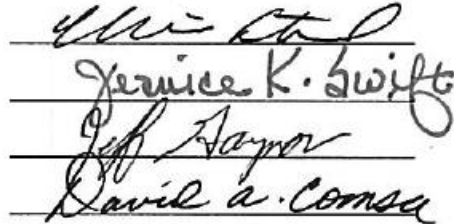 Jernice K. Swift
Jeff Gaynor
David A. Comsa